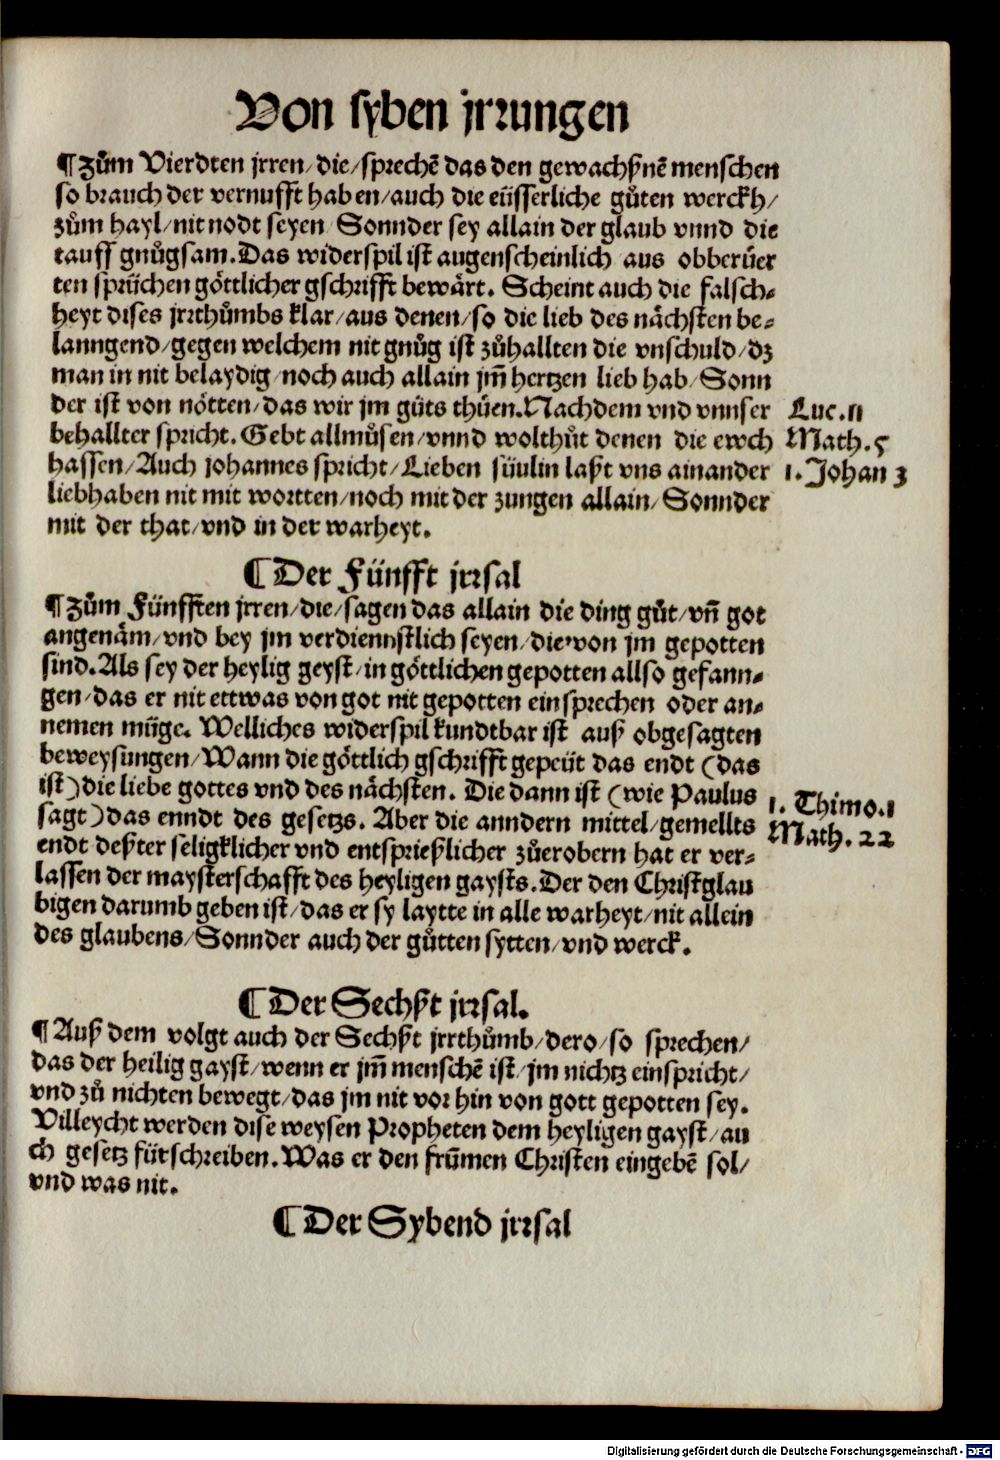 Von syben jrrungen
¶ Zům Vierdten jrren/die/sprechē das den gewachßnē menschen
so brauch der vernufft haben/auch die eüsserliche gůten werckh/
zům hayl/nit nodt seyen Sonnder sey allain der glaub vnnd die
tauff gnůgsam. Das widerspil ist augenscheinlich aus obberüer
ten sprüchen göttlicher gschrifft bewärt. Scheint auch die falsch-
heyt dises jrrthůmbs klar/aus denen/so die lieb des nächsten be-
lanngend/gegen welchem nit gnůg ist zůhallten die vnschuld/dz
man in nit belaydig/noch auch allain jm̄ hertzen lieb hab/Sonn
der ist von nötten/das wir jm gůts thüen. Nachdem vnd vnnser Luc. 11
behallter spricht. Gebt allmůsen/vnnd wolthůt denen die ewch Math. 5
hassen/Auch johannes spricht/Lieben süulin laßt vns ainander 1. Johan 3
liebhaben nit mit wortten/noch mit der zungen allain/Sonnder
mit der that/vnd in der warheyt.
¶ Der Fünfft jrrsal
¶ Zům Fünfften jrren/die/sagen das allain die ding gůt/vn̄ got
angenäm/vnd bey jm verdiennstlich seyen/die von jm gepotten
sind. Als sey der heylig geyst/in göttlichen gepotten allso gefann-
gen/das er nit ettwas von got nit gepotten einsprechen oder an-
nemen müge. Welliches widerspil kundtbar ist auß obgesagten
beweysungen/Wann die göttlich gschrifft gepeüt das endt (das
ist) die liebe gottes vnd des nächsten. Die dann ist (wie Paulus 1. Thimo. 1
sagt) das enndt des gesetzs. Aber die anndern mittel/gemellts Math. 22
endt deßter seligklicher vnd entsprießlicher zůerobern hat er ver-
lassen der maysterschafft des heyligen gaysts. Der den Christglau
bigen darumb geben ist/das er sy laytte in alle warheyt/nit allein
des glaubens/Sonnder auch der gůtten sytten/vnd werck.
¶ Der Sechßt jrrsal.
¶ Auß dem volgt auch der Sechßt jrrthůmb/dero/so sprechen/
das der heilig gayst/wenn er jm̄ menschē ist/jm nichtz einspricht/
vnd zů nichten bewegt/das jm nit vor hin von gott gepotten sey.
Villeycht werden dise weysen Propheten dem heyligen gayst/au
ch gesetz fürschreiben. Was er den frümen Christen eingebē sol/
vnd was nit.
¶ Der Sybend jrrsal
Digitalisierung gefördert durch die Deutsche Forschungsgemeinschaft - DFG